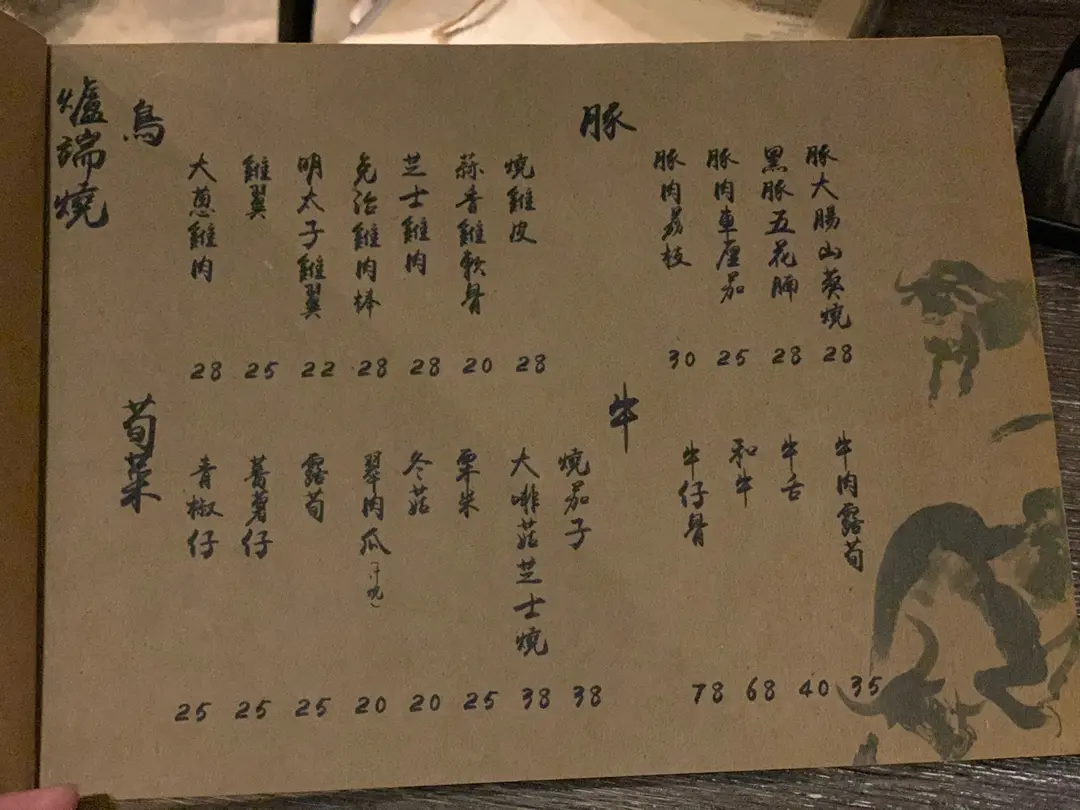 爐端燒
鳥
大蔥雞肉 28
雞翼 25
明太子雞翼 22
免治雞肉棒 28
芝士雞肉 28
蒜香雞軟骨 20
燒雞皮 28
豚
豚肉荔枝 30
豚肉車厘茄 25
黑豚五花腩 28
豚大腸山葵燒 28
荀菜
青椒仔 25
蕃薯仔 25
露荀 25
翠肉瓜 20
冬菇 20
粟米 25
大啡菇芝士燒 38
燒茄子 38
牛
牛仔骨 78
和牛 68
牛舌 40
牛肉露荀 35